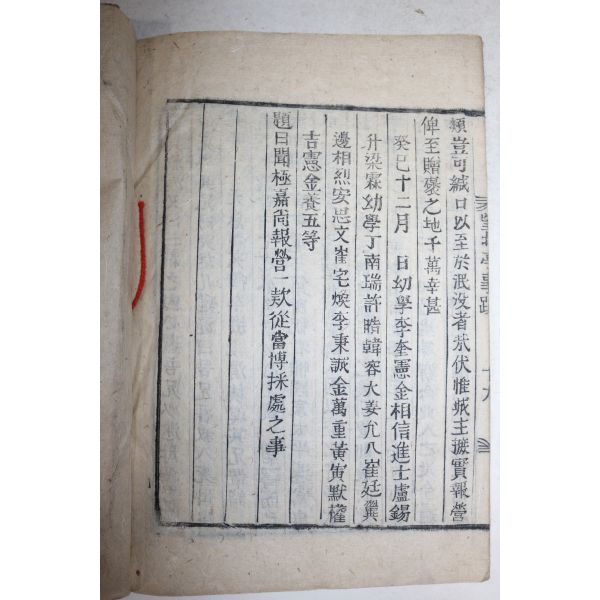 類豈可緘口以至於泯没者玆伏惟城主據實報營
俾至贈褒之地千萬幸甚
癸巳十二月 日幼學李奎憲金相信進士盧錫
升梁霖幼學丁南瑞許晧韓容大姜允八崔廷翼
邊相烈安思文崔宅煥李秉諴金萬重黃寅默權
吉憲金養五等
題曰聞極嘉尚報營一款從當博採處之事
亭事蹟 十九